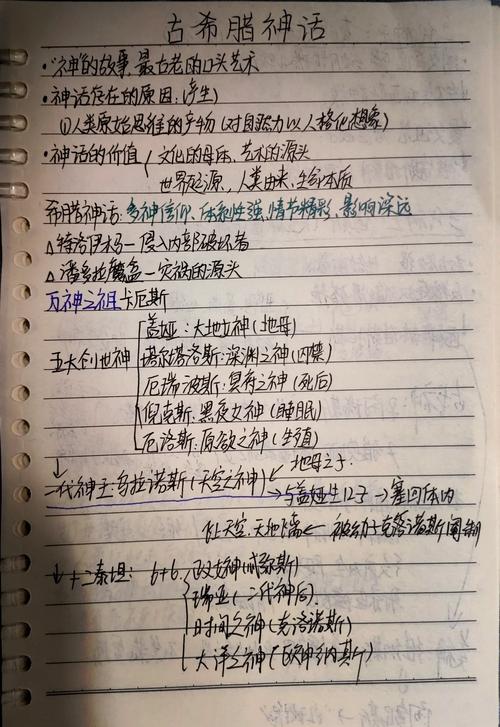 古希腊神话
·"神"的故事,最古老的口头艺术
·神话存在的原因:(产生)
①人类原始思维的产物(对自然力以人格化想象)
·神话的价值{文化的母体、艺术的源头
世界起源,人类由来,生命本质
希腊神话:多神信仰、体系性强、情节精彩、影响深远
△特洛伊木马—侵入内部破坏者
△潘多拉魔盒—灾祸的源头
万神之祖卡厄斯
五大创世神
盖娅:大地女神(地母)
塔尔塔洛斯:深渊之神(囚禁)
厄瑞波斯:冥府之神(死后)
倪克斯:黑夜女神(睡眠)
厄洛斯:原欲之神(生殖)
↓
二代神王乌拉诺斯(天空之神)← 地母之子
→与盖娅生12子→塞回体内
化天空,天地隔← 被幼子克洛诺斯阉割
↓十二泰坦:6+6
女神(忒弥斯)
瑞亚(二代神后)
时间之神(克洛诺斯)
大洋之神(